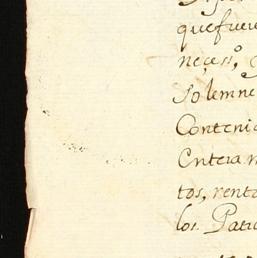 quefuere
neçessº
Solemne
Conteni
Entera m
tos, rent
los Patr